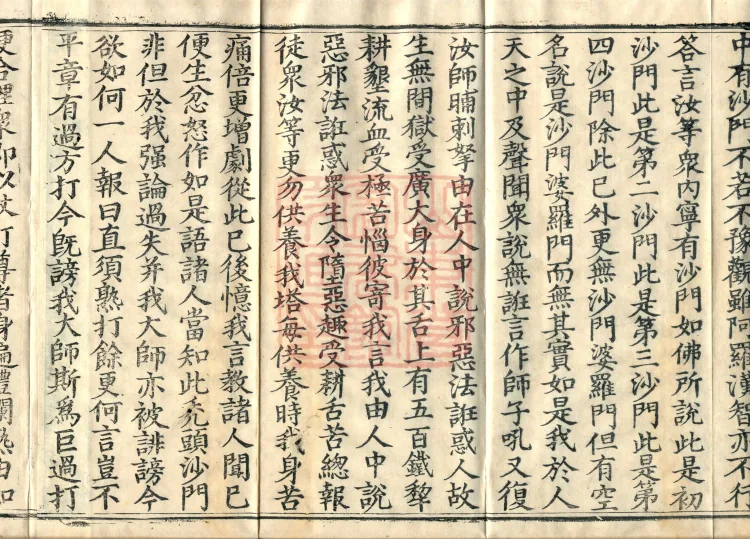 中有沙門不若不豫觀雖阿羅漢智亦不行
答言汝等衆内寧有沙門如佛所說此是初
沙門此是第二沙門此是第三沙門此是第
四沙門除此已外更無沙門婆羅門但有空
名說是沙門婆羅門而無其實如是我於人
天之中及聲聞衆說無誑言作師子吼又復
汝師晡剌拏由在人中說邪惡法誑惑人故
生無間獄受廣大身於其舌上有五百鐵犂
耕墾流血受極苦惱彼寄我言我由人中說
惡邪法誑惑衆生令墮惡趣受耕舌苦總報
徒衆汝等更勿供養我塔每供養時我身苦
痛倍更增劇從此已後憶我言教諸人聞已
便生忿怒作如是語諸人當知此禿頭沙門
非但於我强論過失并我大師亦被誹謗今
欲如何一人報曰直須熟打餘更何言豈不
平章有過方打今既謗我大師斯爲巨過打
更合衆即以杖打尊者身遍爛熟由如